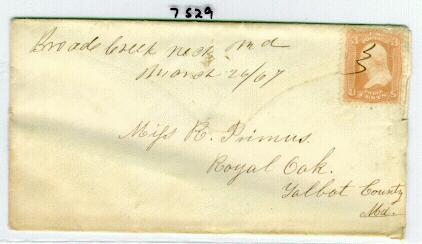 7529
Broad Creek neck Md
March 26/67
Miss R. Primus.
Royal Oak.
Talbot County
Md.